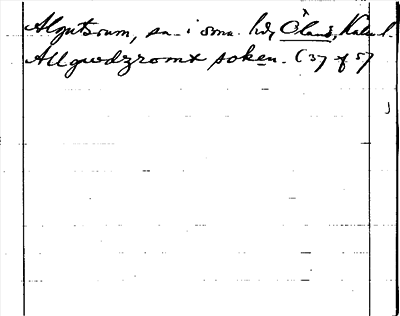 Algutsrum, sn i sma. hd, Öland, Kalm l.
Allgwdzromx soken. C 37 f 57